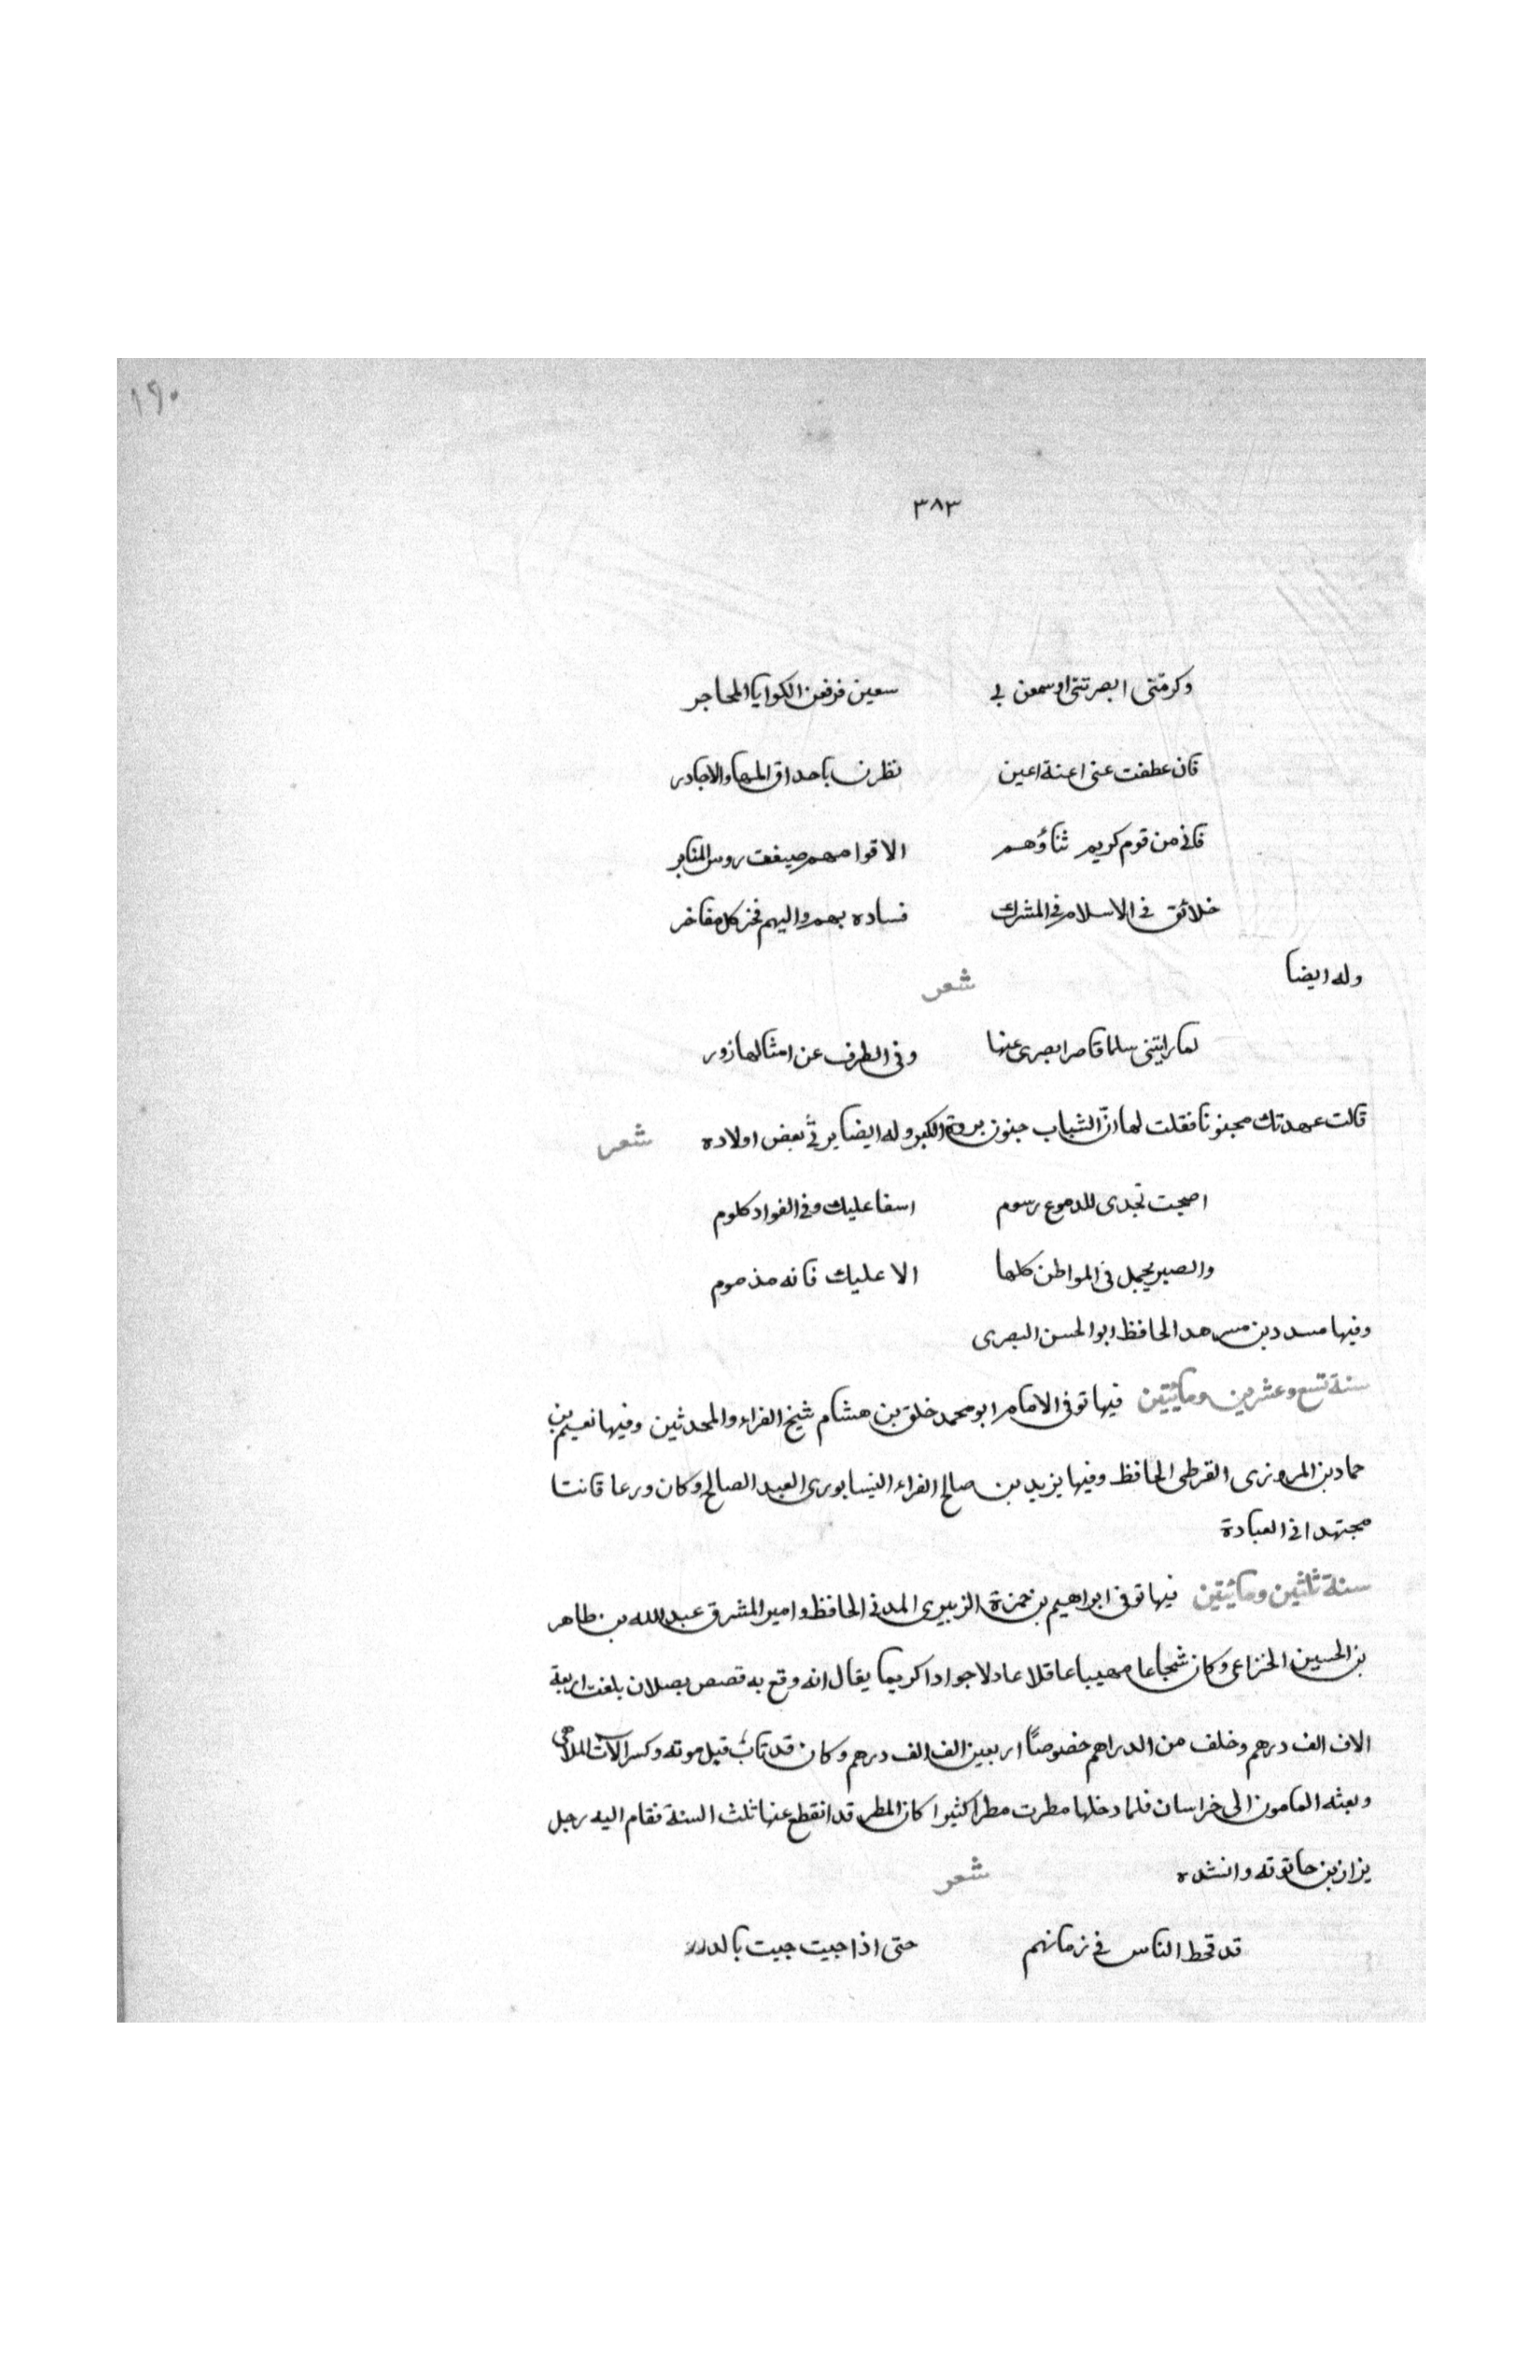 ١٩٠
٣٨٣
وكرمتى ابصرتنى اوسمعن بي سعين فرفعن الكوايا المحاجر
فان عطفت عنى اعنة اعين نظرن باحداق المها والاجادر
فاني من قوم كريم ثناؤهم الاقوامهم صيغت روس المنابر
خلائق في الاسلام في المشرك فساده بهم واليهم فخر كل مفاخر
وله ايضا شعر
لما رايتنى سلما قاصرا بصرى عنها وفى الطرف عن امثالها زور
قالت عهدتك مجنونا فقلت لها انّ الشباب جنون بروة الكبر وله ايضا يرثي بعض اولاده شعر
اصحبت تجدى للدموع رسوم اسفا عليك وفى الفواد كلوم
والصبر يجمل في المواطن كلها الا عليك فانه مذموم
وفيها مسدد بن مسرهد الحافظ ابو الحسن البصرى
سنة تسع وعشرين ومائيتين فيها توفى الامام ابو محمد خلق بن هشام شيخ القراء والمحدثين وفيها نعيم بن
حماد بن المروزى القرطى الحافظ وفيها يزيد بن صالح الفراء النيسابورى العبد الصالح وكان ورعا قانتا
مجتهدا في العبادة
سنة ثلثين ومائيتين فيها توفى ابراهيم بن حمزة الزبيرى المدنى الحافظ وامير المشرق عبد الله بن طاهر
بن الحسين الخزاعى وكان شجاعا مهيبا عاقلا عادلا جوادا كريما يقال انه وقع به قصص بصلان بلغت اربعة
الاف الف درهم وخلف من الدراهم خصوصاً اربعين الف الف درهم وكان قد تاب قبل موته وكسر الات الملاهى
وبعثه المامون الى خراسان فلما دخلها مطرت مطرا كثيرا كان المطر قد انقطع عنها ثلث السنة فقام اليه رجل
يزاز بن حاتوته وانشده شعر
قد قحط الناس في زمانهم حتى اذا جيت جيت بالدرر